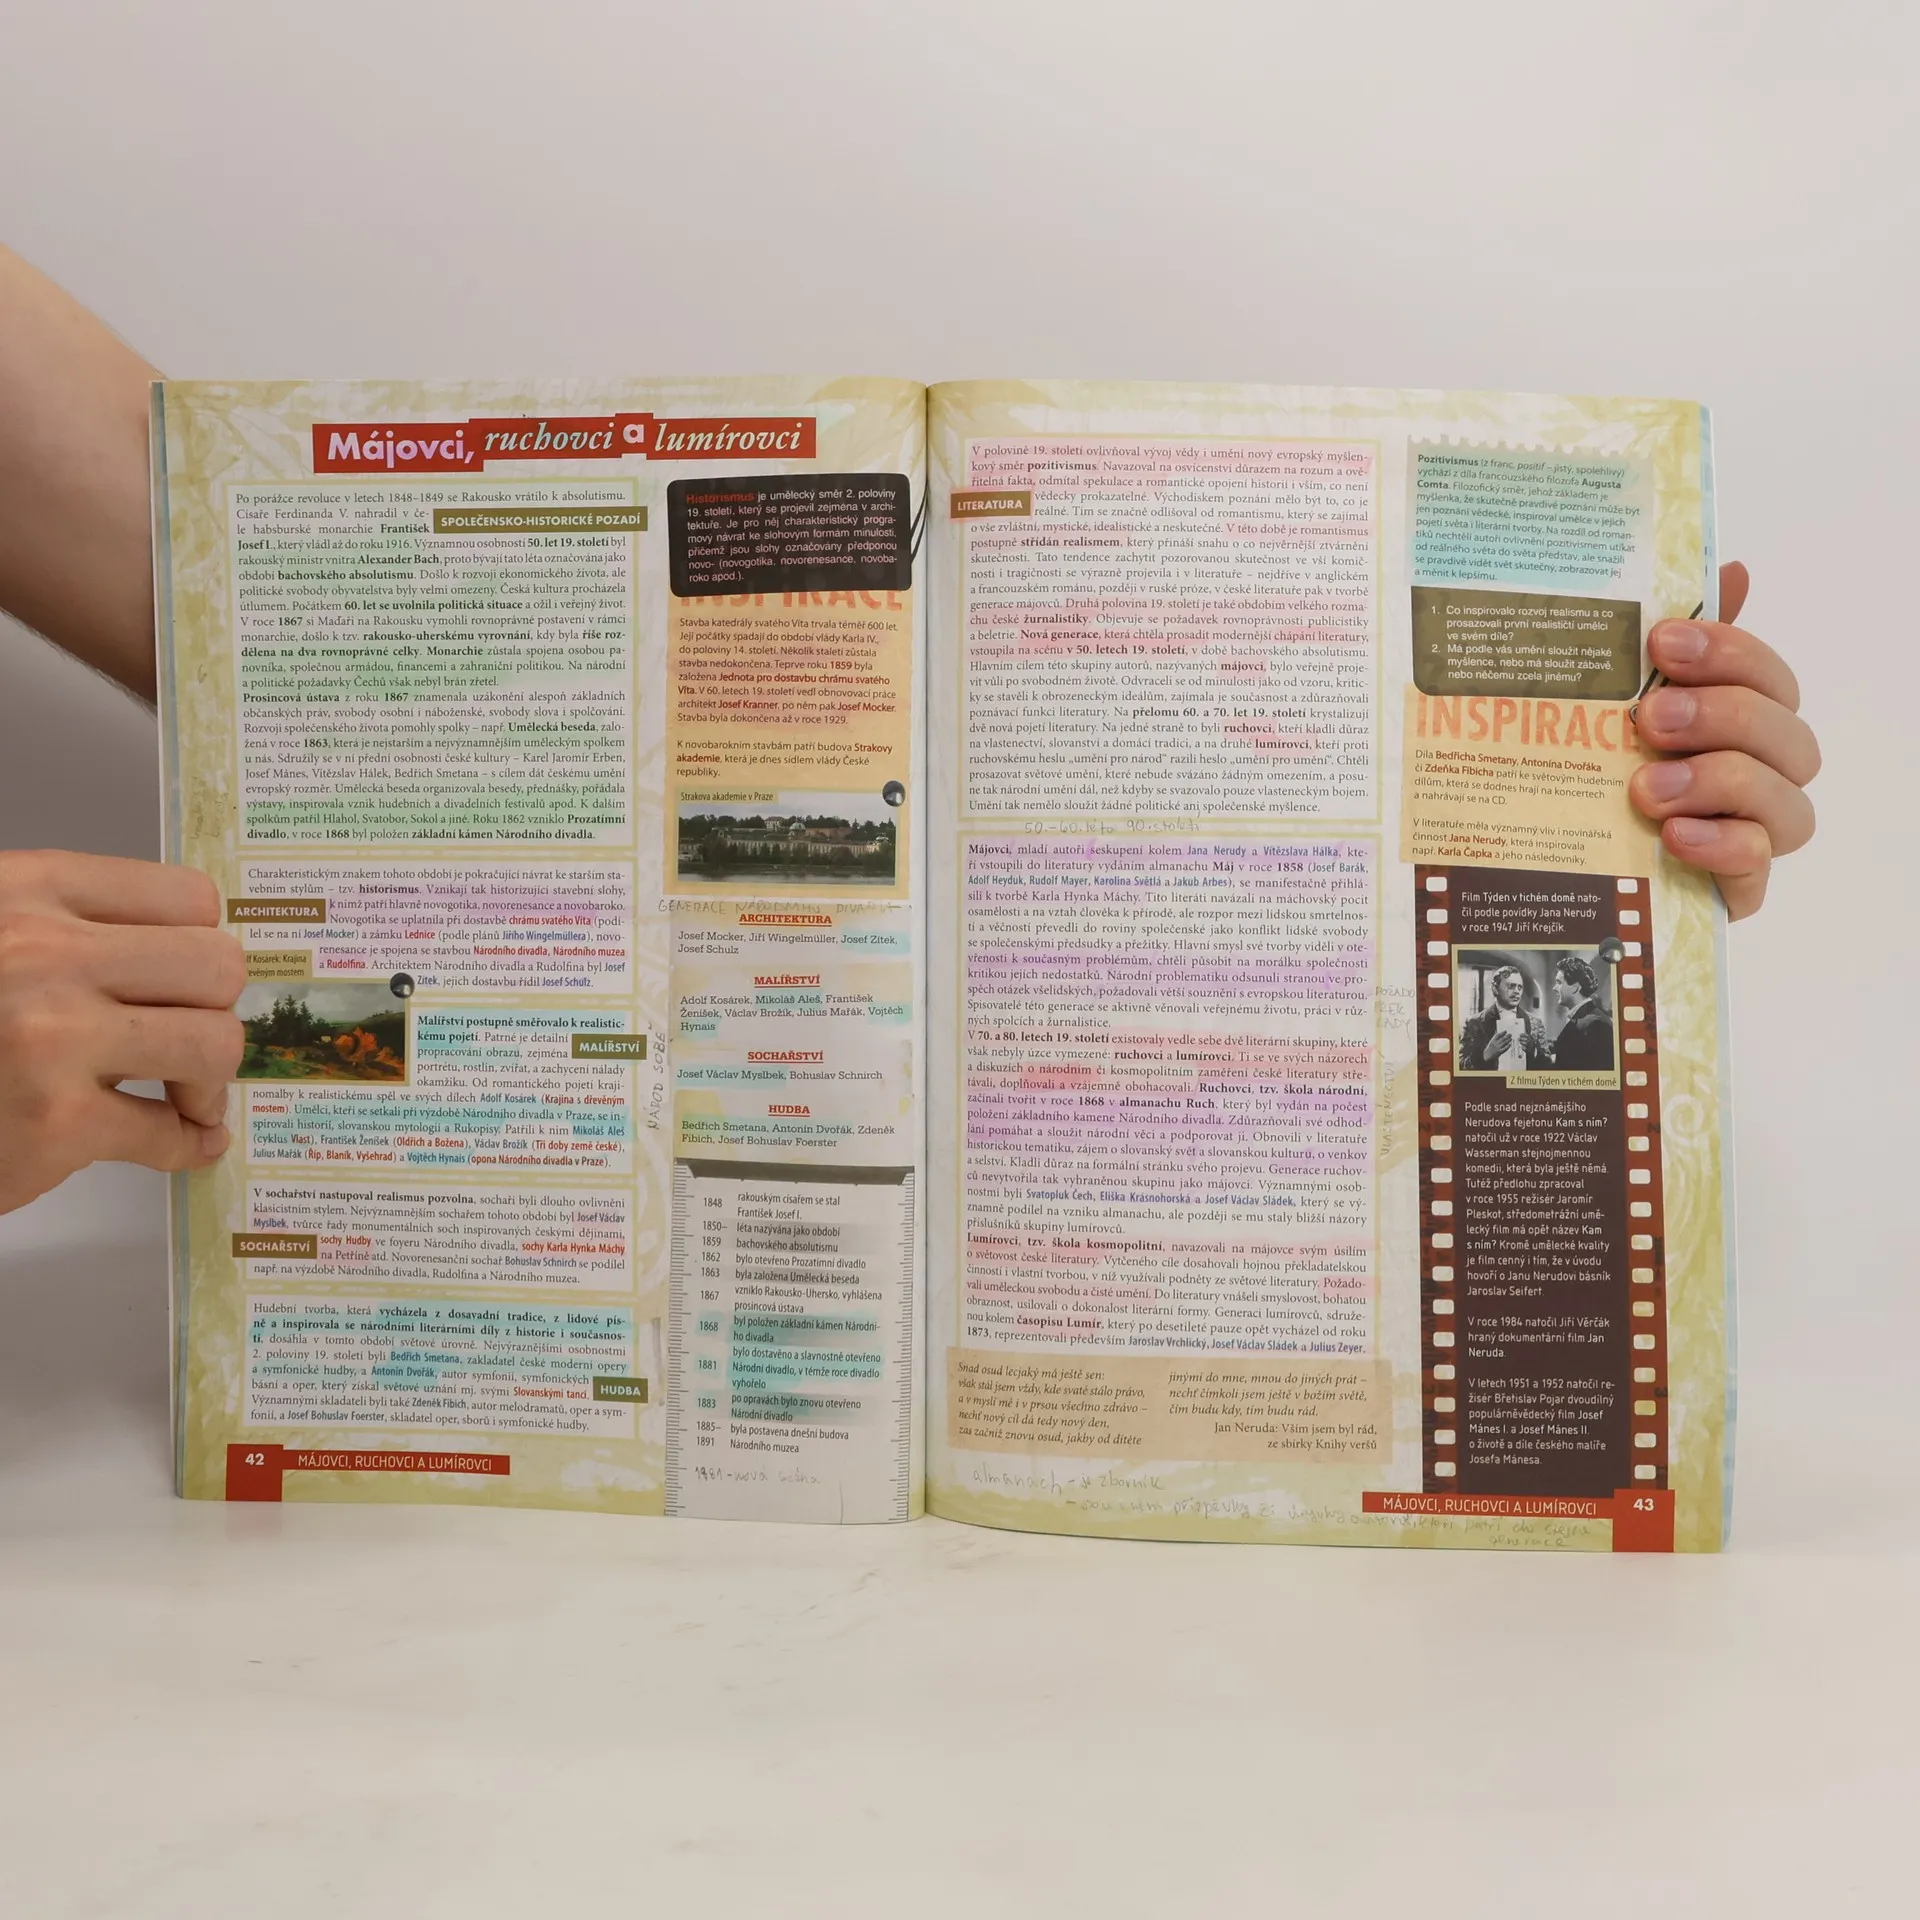 Májovci, ruchovci a lumírovci
Po porážce revoluce v letech 1848–1849 se Rakousko vrátilo k absolutismu.
Císaře Ferdinanda V. nahradil v če-
le habsburské monarchie František
SPOLEČENSKO-HISTORICKÉ POZADÍ
Josef I., který vládl až do roku 1916. Významnou osobností 50. let 19. století byl
rakouský ministr vnitra Alexander Bach, proto bývají tato léta označována jako
období bachovského absolutismu. Došlo k rozvoji ekonomického života, ale
politické svobody obyvatelstva byly velmi omezeny. Česká kultura procházela
útlumem. Počátkem 60. let se uvolnila politická situace a ožil i veřejný život.
V roce 1867 si Maďaři na Rakousku vymohli rovnoprávné postavení v rámci
monarchie, došlo k tzv. rakousko-uherskému vyrovnání, kdy byla říše roz-
dělena na dva rovnoprávné celky. Monarchie zůstala spojena osobou pa-
novníka, společnou armádou, financemi a zahraniční politikou. Na národní
a politické požadavky Čechů však nebyl brán zřetel.
Prosincová ústava z roku 1867 znamenala uzákonění alespoň základních
občanských práv, svobody osobní i náboženské, svobody slova i spolčování.
Rozvoji společenského života pomohly spolky – např. Umělecká beseda, zalo-
žená v roce 1863, která je nejstarším a nejvýznamnějším uměleckým spolkem
u nás. Sdružily se v ní přední osobnosti české kultury – Karel Jaromír Erben,
Josef Mánes, Vítězslav Hálek, Bedřich Smetana – s cílem dát českému umění
evropský rozměr. Umělecká beseda organizovala besedy, přednášky, pořádala
výstavy, inspirovala vznik hudebních a divadelních festivalů apod. K dalším
spolkům patřil Hlahol, Svatobor, Sokol a jiné. Roku 1862 vzniklo Prozatímní
divadlo, v roce 1868 byl položen základní kámen Národního divadla.
Charakteristickým znakem tohoto období je pokračující návrat ke starším sta-
vebním stylům – tzv. historismus. Vznikají tak historizující stavební slohy,
ARCHITEKTURA
k nimž patří hlavně novogotika, novorenesance a novobaroko.
Novogotika se uplatnila při dostavbě chrámu svatého Víta (podí-
lel se na ní Josef Mocker) a zámku Lednice (podle plánů Jiřího Wingelmüllera), novo-
renesance je spojena se stavbou Národního divadla, Národního muzea
a Rudolfina. Architektem Národního divadla a Rudolfina byl Josef
Zítek, jejich dostavbu řídil Josef Schulz.
lf Kosárek: Krajina
evěným mostem
Malířství postupně směřovalo k realistic-
kému pojetí. Patrné je detailní
MALÍŘSTVÍ
propracování obrazu, zejména
portrétu, rostlin, zvířat, a zachycení nálady
okamžiku. Od romantického pojetí kraji-
nomalby k realistickému spěl ve svých dílech Adolf Kosárek (Krajina s dřevěným
mostem). Umělci, kteří se setkali při výzdobě Národního divadla v Praze, se in-
spirovali historií, slovanskou mytologií a Rukopisy. Patřili k nim Mikoláš Aleš
(cyklus Vlast), František Ženíšek (Oldřich a Božena), Václav Brožík (Tři doby země české),
Julius Mařák (Říp, Blaník, Vyšehrad) a Vojtěch Hynais (opona Národního divadla v Praze).
V sochařství nastupoval realismus pozvolna, sochaři byli dlouho ovlivněni
klasicistním stylem. Nejvýznamnějším sochařem tohoto období byl Josef Václav
Myslbek, tvůrce řady monumentálních soch inspirovaných českými dějinami,
SOCHAŘSTVÍ
sochy Hudby ve foyeru Národního divadla, sochy Karla Hynka Máchy
na Petříně atd. Novorenesanční sochař Bohuslav Schnirch se podílel
např. na výzdobě Národního divadla, Rudolfina a Národního muzea.
Hudební tvorba, která vycházela z dosavadní tradice, z lidové pís-
ně a inspirovala se národními literárními díly z historie i současnos-
ti, dosáhla v tomto období světové úrovně. Nejvýraznějšími osobnostmi
2. poloviny 19. století byli Bedřich Smetana, zakladatel české moderní opery
a symfonické hudby, a Antonín Dvořák, autor symfonií, symfonických
básní a oper, který získal světové uznání mj. svými Slovanskými tanci.
HUDBA
Významnými skladateli byli také Zdeněk Fibich, autor melodramatů, oper a sym-
fonií, a Josef Bohuslav Foerster, skladatel oper, sborů i symfonické hudby.
42 MÁJOVCI, RUCHOVCI A LUMÍROVCI
Historismus je umělecký směr 2. poloviny
19. století, který se projevil zejména v archi-
tektuře. Je pro něj charakteristický progra-
mový návrat ke slohovým formám minulosti,
přičemž jsou slohy označovány předponou
novo- (novogotika, novorenesance, novoba-
roko apod.).
INSPIRACE
Stavba katedrály svatého Víta trvala téměř 600 let.
Její počátky spadají do období vlády Karla IV.,
do poloviny 14. století. Několik staletí zůstala
stavba nedokončena. Teprve roku 1859 byla
založena Jednota pro dostavbu chrámu svatého
Víta. V 60. letech 19. století vedl obnovovací práce
architekt Josef Kranner, po něm pak Josef Mocker.
Stavba byla dokončena až v roce 1929.
K novobarokním stavbám patří budova Strakovy
akademie, která je dnes sídlem vlády České
republiky.
Strakova akademie v Praze
GENERACE NÁRODNÍHO DIVADLA
ARCHITEKTURA
Josef Mocker, Jiří Wingelmüller, Josef Zítek,
Josef Schulz
MALÍŘSTVÍ
Adolf Kosárek, Mikoláš Aleš, František
Ženíšek, Václav Brožík, Julius Mařák, Vojtěch
Hynais
SOCHAŘSTVÍ
Josef Václav Myslbek, Bohuslav Schnirch
HUDBA
Bedřich Smetana, Antonín Dvořák, Zdeněk
Fibich, Josef Bohuslav Foerster
NÁROD SOBĚ
1848 rakouským císařem se stal
František Josef I.
1850– léta nazývána jako období
1859 bachovského absolutismu
1862 bylo otevřeno Prozatímní divadlo
1863 byla založena Umělecká beseda
1867 vzniklo Rakousko-Uhersko, vyhlášena
prosincová ústava
1868 byl položen základní kámen Národní-
ho divadla
1881 bylo dostavěno a slavnostně otevřeno
Národní divadlo, v témže roce divadlo
vyhořelo
1883 po opravách bylo znovu otevřeno
Národní divadlo
1885– byla postavena dnešní budova
1891 Národního muzea
1981 - nová scéna
V polovině 19. století ovlivňoval vývoj vědy i umění nový evropský myšlen-
kový směr pozitivismus. Navazoval na osvícenství důrazem na rozum a ově-
řitelná fakta, odmítal spekulace a romantické opojení historií i vším, co není
LITERATURA
vědecky prokazatelné. Východiskem poznání mělo být to, co je
reálné. Tím se značně odlišoval od romantismu, který se zajímal
o vše zvláštní, mystické, idealistické a neskutečné. V této době je romantismus
postupně střídán realismem, který přináší snahu o co nejvěrnější ztvárnění
skutečnosti. Tato tendence zachytit pozorovanou skutečnost ve vší komič-
nosti i tragičnosti se výrazně projevila i v literatuře – nejdříve v anglickém
a francouzském románu, později v ruské próze, v české literatuře pak v tvorbě
generace májovců. Druhá polovina 19. století je také obdobím velkého rozma-
chu české žurnalistiky. Objevuje se požadavek rovnoprávnosti publicistiky
a beletrie. Nová generace, která chtěla prosadit modernější chápání literatury,
vstoupila na scénu v 50. letech 19. století, v době bachovského absolutismu.
Hlavním cílem této skupiny autorů, nazývaných májovci, bylo veřejně proje-
vit vůli po svobodném životě. Odvraceli se od minulosti jako od vzoru, kritic-
ky se stavěli k obrozeneckým ideálům, zajímala je současnost a zdůrazňovali
poznávací funkci literatury. Na přelomu 60. a 70. let 19. století krystalizují
dvě nová pojetí literatury. Na jedné straně to byli ruchovci, kteří kladli důraz
na vlastenectví, slovanství a domácí tradici, a na druhé lumírovci, kteří proti
ruchovskému heslu „umění pro národ“ razili heslo „umění pro umění“. Chtěli
prosazovat světové umění, které nebude svázáno žádným omezením, a posu-
ne tak národní umění dál, než kdyby se svazovalo pouze vlasteneckým bojem.
Umění tak nemělo sloužit žádné politické ani společenské myšlence.
50.-60. léta 90. století
Májovci, mladí autoři seskupení kolem Jana Nerudy a Vítězslava Hálka, kte-
ří vstoupili do literatury vydáním almanachu Máj v roce 1858 (Josef Barák,
Adolf Heyduk, Rudolf Mayer, Karolina Světlá a Jakub Arbes), se manifestačně přihlá-
sili k tvorbě Karla Hynka Máchy. Tito literáti navázali na máchovský pocit
osamělosti a na vztah člověka k přírodě, ale rozpor mezi lidskou smrtelnos-
tí a věčností převedli do roviny společenské jako konflikt lidské svobody
se společenskými předsudky a přežitky. Hlavní smysl své tvorby viděli v ote-
vřenosti k současným problémům, chtěli působit na morálku společnosti
kritikou jejích nedostatků. Národní problematiku odsunuli stranou ve pro-
spěch otázek všelidských, požadovali větší souznění s evropskou literaturou.
Spisovatelé této generace se aktivně věnovali veřejnému životu, práci v růz-
ných spolcích a žurnalistice.
V 70. a 80. letech 19. století existovaly vedle sebe dvě literární skupiny, které
však nebyly úzce vymezené: ruchovci a lumírovci. Ti se ve svých názorech
a diskuzích o národním či kosmopolitním zaměření české literatury stře-
távali, doplňovali a vzájemně obohacovali. Ruchovci, tzv. škola národní,
začínali tvořit v roce 1868 v almanachu Ruch, který byl vydán na počest
položení základního kamene Národního divadla. Zdůrazňovali své odhod-
lání pomáhat a sloužit národní věci a podporovat ji. Obnovili v literatuře
historickou tematiku, zájem o slovanský svět a slovanskou kulturu, o venkov
a selství. Kladli důraz na formální stránku svého projevu. Generace ruchov-
ců nevytvořila tak vyhraněnou skupinu jako májovci. Významnými osob-
nostmi byli Svatopluk Čech, Eliška Krásnohorská a Josef Václav Sládek, který se vý-
znamně podílel na vzniku almanachu, ale později se mu staly bližší názory
příslušníků skupiny lumírovců.
Lumírovci, tzv. škola kosmopolitní, navazovali na májovce svým úsilím
o světovost české literatury. Vytčeného cíle dosahovali hojnou překladatelskou
činností i vlastní tvorbou, v níž využívali podněty ze světové literatury. Požado-
vali uměleckou svobodu a čisté umění. Do literatury vnášeli smyslovost, bohatou
obraznost, usilovali o dokonalost literární formy. Generaci lumírovců, sdruže-
nou kolem časopisu Lumír, který po desetileté pauze opět vycházel od roku
1873, reprezentovali především Jaroslav Vrchlický, Josef Václav Sládek a Julius Zeyer.
VLASTENECTVÍ
Snad osud lecjaký má ještě sen:
však stál jsem vždy, kde svaté stálo právo,
a v mysli mě i v prsou všechno zdrávo –
nechť nový cíl dá tedy nový den,
zas začniž znovu osud, jakby od dítěte
jinými do mne, mnou do jiných prát –
nechť čímkoli jsem ještě v božím světě,
čím budu kdy, tím budu rád.
Jan Neruda: Vším jsem byl rád,
ze sbírky Knihy veršů
almanach - je zborník
Pozitivismus (z franc. positif – jistý, spolehlivý)
vychází z díla francouzského filozofa Augusta
Comta. Filozofický směr, jehož základem je
myšlenka, že skutečně pravdivé poznání může být
jen poznání vědecké, inspiroval umělce v jejich
pojetí světa i literární tvorby. Na rozdíl od roman-
tiků nechtěli autoři ovlivnění pozitivismem utíkat
od reálného světa do světa představ, ale snažili
se pravdivě vidět svět skutečný, zobrazovat jej
a měnit k lepšímu.
1. Co inspirovalo rozvoj realismu a co
prosazovali první realističtí umělci
ve svém díle?
2. Má podle vás umění sloužit nějaké
myšlence, nebo má sloužit zábavě,
nebo něčemu zcela jinému?
INSPIRACE
Díla Bedřicha Smetany, Antonína Dvořáka
či Zdeňka Fibicha patří ke světovým hudebním
dílům, která se dodnes hrají na koncertech
a nahrávají se na CD.
V literatuře měla významný vliv i novinářská
činnost Jana Nerudy, která inspirovala
např. Karla Čapka a jeho následovníky.
Film Týden v tichém domě nato-
čil podle povídky Jana Nerudy
v roce 1947 Jiří Krejčík.
Z filmu Týden v tichém domě
Podle snad nejznámějšího
Nerudova fejetonu Kam s ním?
natočil už v roce 1922 Václav
Wasserman stejnojmennou
komedii, která byla ještě němá.
Tutéž předlohu zpracoval
v roce 1955 režisér Jaromír
Pleskot, středometrážní umě-
lecký film má opět název Kam
s ním? Kromě umělecké kvality
je film cenný i tím, že v úvodu
hovoří o Janu Nerudovi básník
Jaroslav Seifert.
V roce 1984 natočil Jiří Věrčák
hraný dokumentární film Jan
Neruda.
V letech 1951 a 1952 natočil re-
žisér Břetislav Pojar dvoudílný
populárněvědecký film Josef
Mánes I. a Josef Mánes II.
o životě a díle českého malíře
Josefa Mánesa.
MÁJOVCI, RUCHOVCI A LUMÍROVCI 43